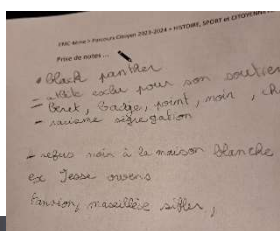 EMC 4ème > Parcours Citoyen 2023-2024 > HISTOIRE, SPORT et CITOYENN
Prise de notes ...
• Black panther
- exclu pour son soutien
- Beret, Badge, point, noir,
- racisme ségrégation
- refus noir à la maison blanche
ex Jesse owens
siffler,